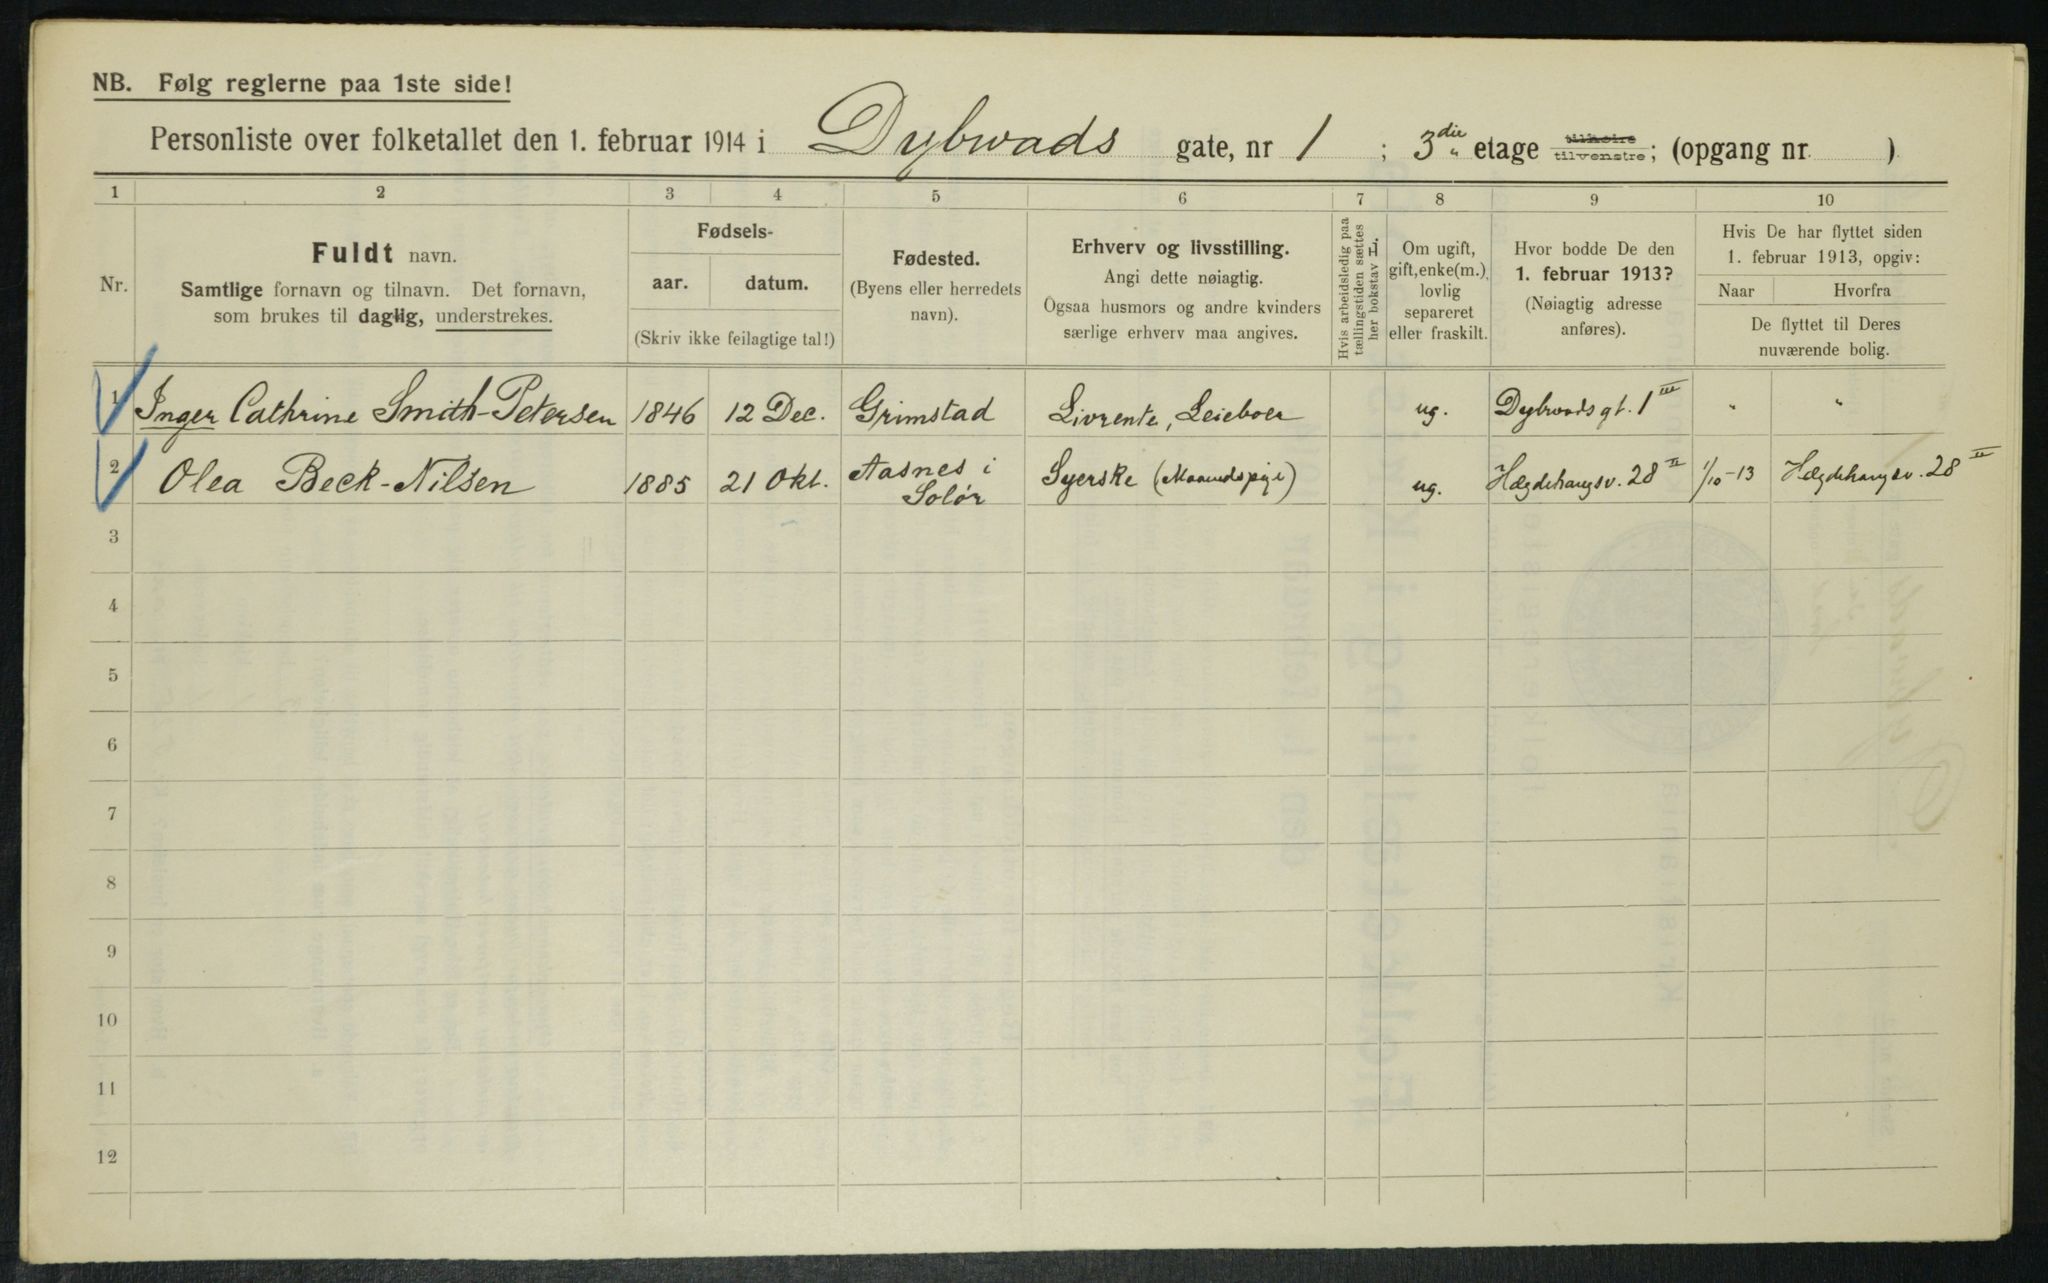 NB. Følg reglerne paa 1ste side!
Personliste over folketallet den 1. februar 1914 i Dybwads gate, nr 1 ; 3die etage tilhøire tilvenstre; (opgang nr. )
1 2 3 4 5 6 7 8 9 10
Nr.
Fuldt navn.
Samtlige fornavn og tilnavn. Det fornavn,
som brukes til daglig, understrekes.
Fødsels-
aar. datum.
(Skriv ikke feilagtige tal!)
Fødested.
(Byens eller herredets
navn).
Erhverv og livsstilling.
Angi dette nøiagtig.
Ogsaa husmors og andre kvinders
særlige erhverv maa angives.
Hvis arbeidsledig paa
tællingstiden sættes
her bokstav L.
Om ugift,
gift, enke(m.),
lovlig
separeret
eller fraskilt.
Hvor bodde De den
1. februar 1913?
(Nøiagtig adresse
anføres).
Hvis De har flyttet siden
1. februar 1913, opgiv:
Naar Hvorfra
De flyttet til Deres
nuværende bolig.
1 Inger Cathrine Smith-Petersen 1846 12 Dec. Grimstad Livrente, Leieboer ug. Dybwadsgt. 1 III " "
2 Olea Beck-Nilsen 1885 21 Okt. Aasnes i Solør Syerske (Maanedspige) ug. Hægdehaugsv. 28 II 1/10-13 Hægdehaugsv. 28 II
3
4
5
6
7
8
9
10
11
12